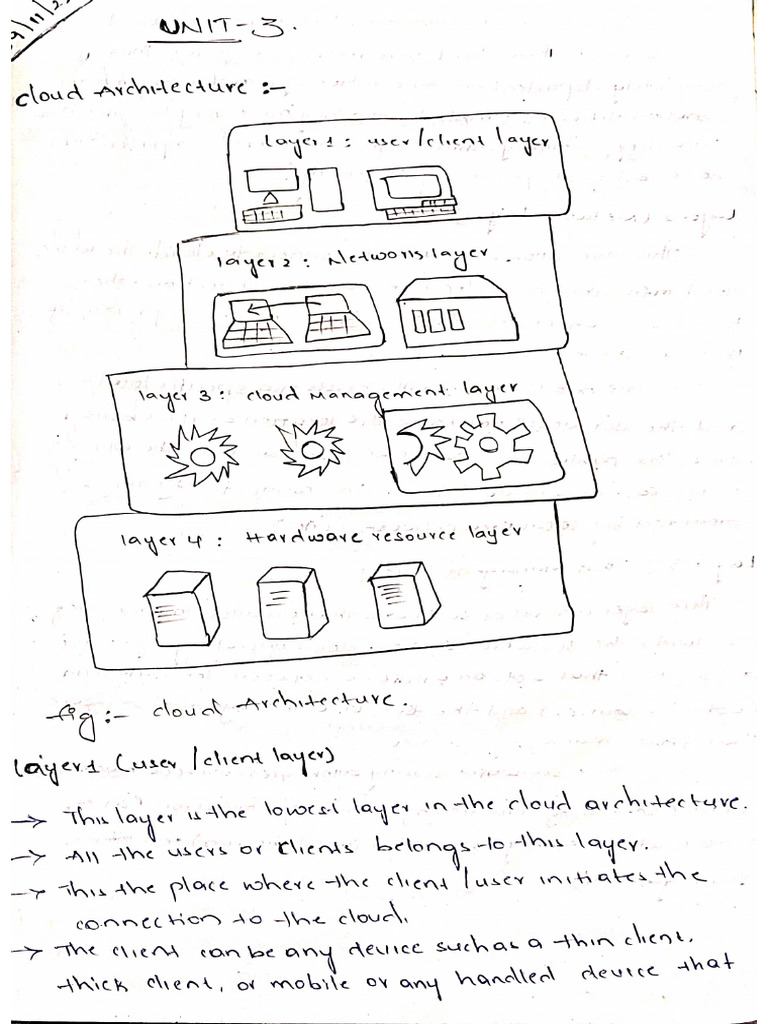 UNIT-3.
Cloud Architecture :-
layer 1 : user/client layer
layer 2 : Network layer
layer 3 : cloud Management layer
layer 4 : Hardware resource layer
fig :- cloud Architecture.
layer 1 (user /client layer)
→ This layer is the lowest layer in the cloud architecture.
→ All the users or clients belongs to this layer.
→ This the place where the client /user initiates the
connection to the cloud.
→ The client can be any device such as a thin client,
thick client, or mobile or any handled device that